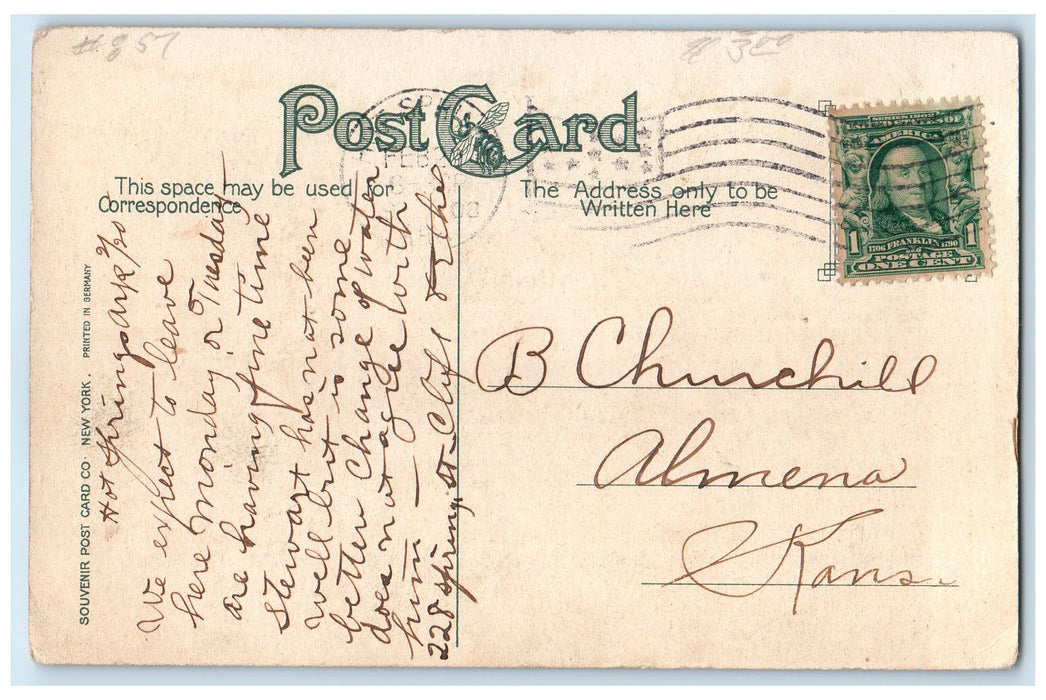 # 857
# 3.00
Post Card
SPR
FEB
08
This space may be used for
Correspondence
The Address only to be
Written Here
SERIES 1902
UNITED STATES OF
AMERICA
1 1706 FRANKLIN 1790 1
POSTAGE
ONE CENT
SOUVENIR POST CARD CO. NEW YORK. PRINTED IN GERMANY
Hot Springs Ark 2/20
We expect to leave
here Monday or Tuesday
are having fine time
Stewart has not been
well but is some
better Change of water
does not agree with
him —
228 Spring st Cliff
B Churchill
Almena
Kans.